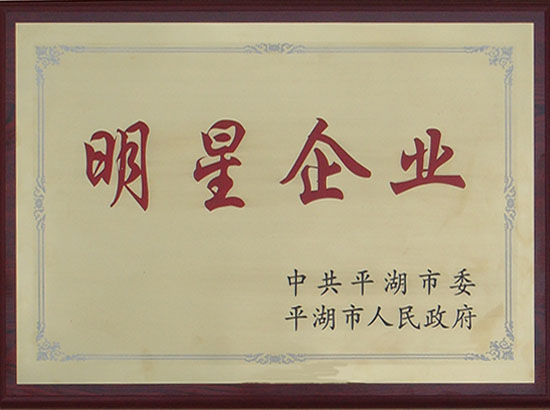 明星企业
中共平湖市委
平湖市人民政府